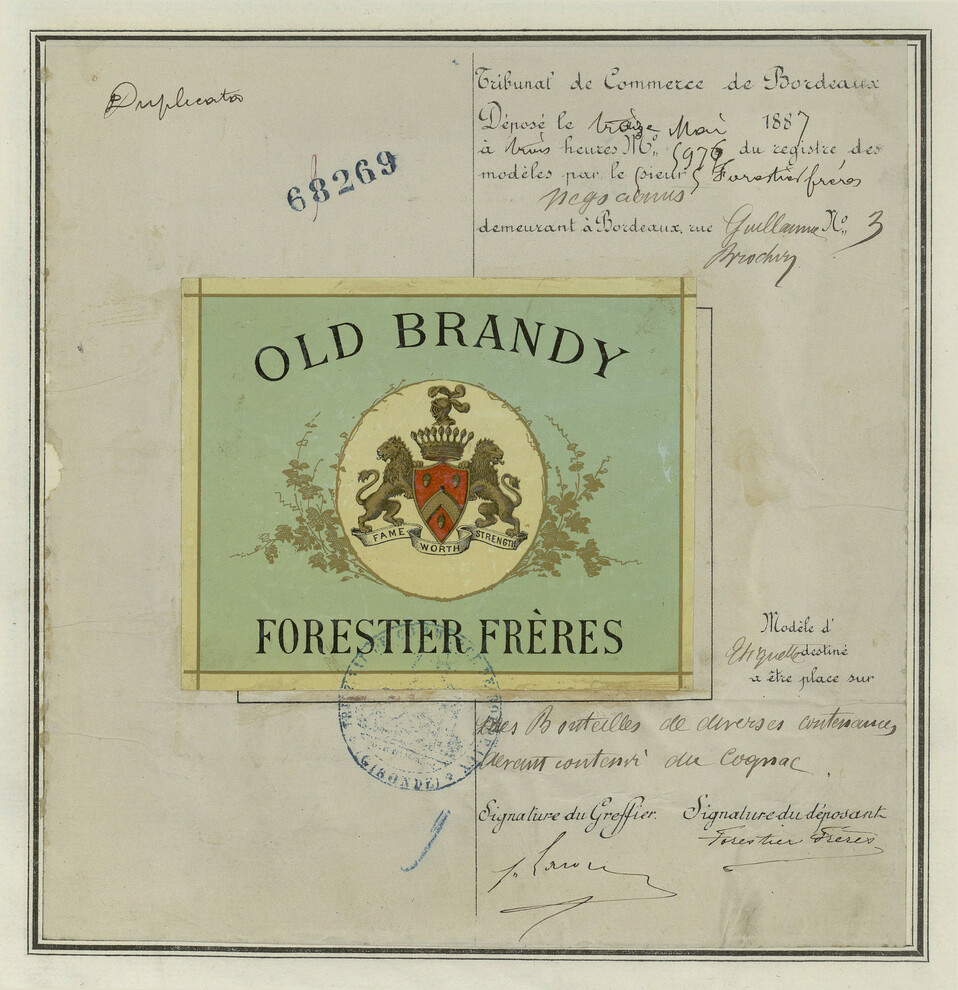 Duplicata
68269
Tribunal de Commerce de Bordeaux
Déposé le treize Mai 1887
à trois heures No. 5976 du registre des
modèles par le sieur Forestier frères
négociants
demeurant à Bordeaux, rue Guillaume No. 3
Brochon
OLD BRANDY
FAME WORTH STRENGTH
FORESTIER FRÈRES
Modèle d'
Etiquette destiné
a être place sur
des Bouteilles de diverses contenances
devant contenir du Cognac
TRIBUNAL DE COMMERCE DE BORDEAUX
(GIRONDE)
Signature du Greffier. Signature du déposant
Forestier Frères